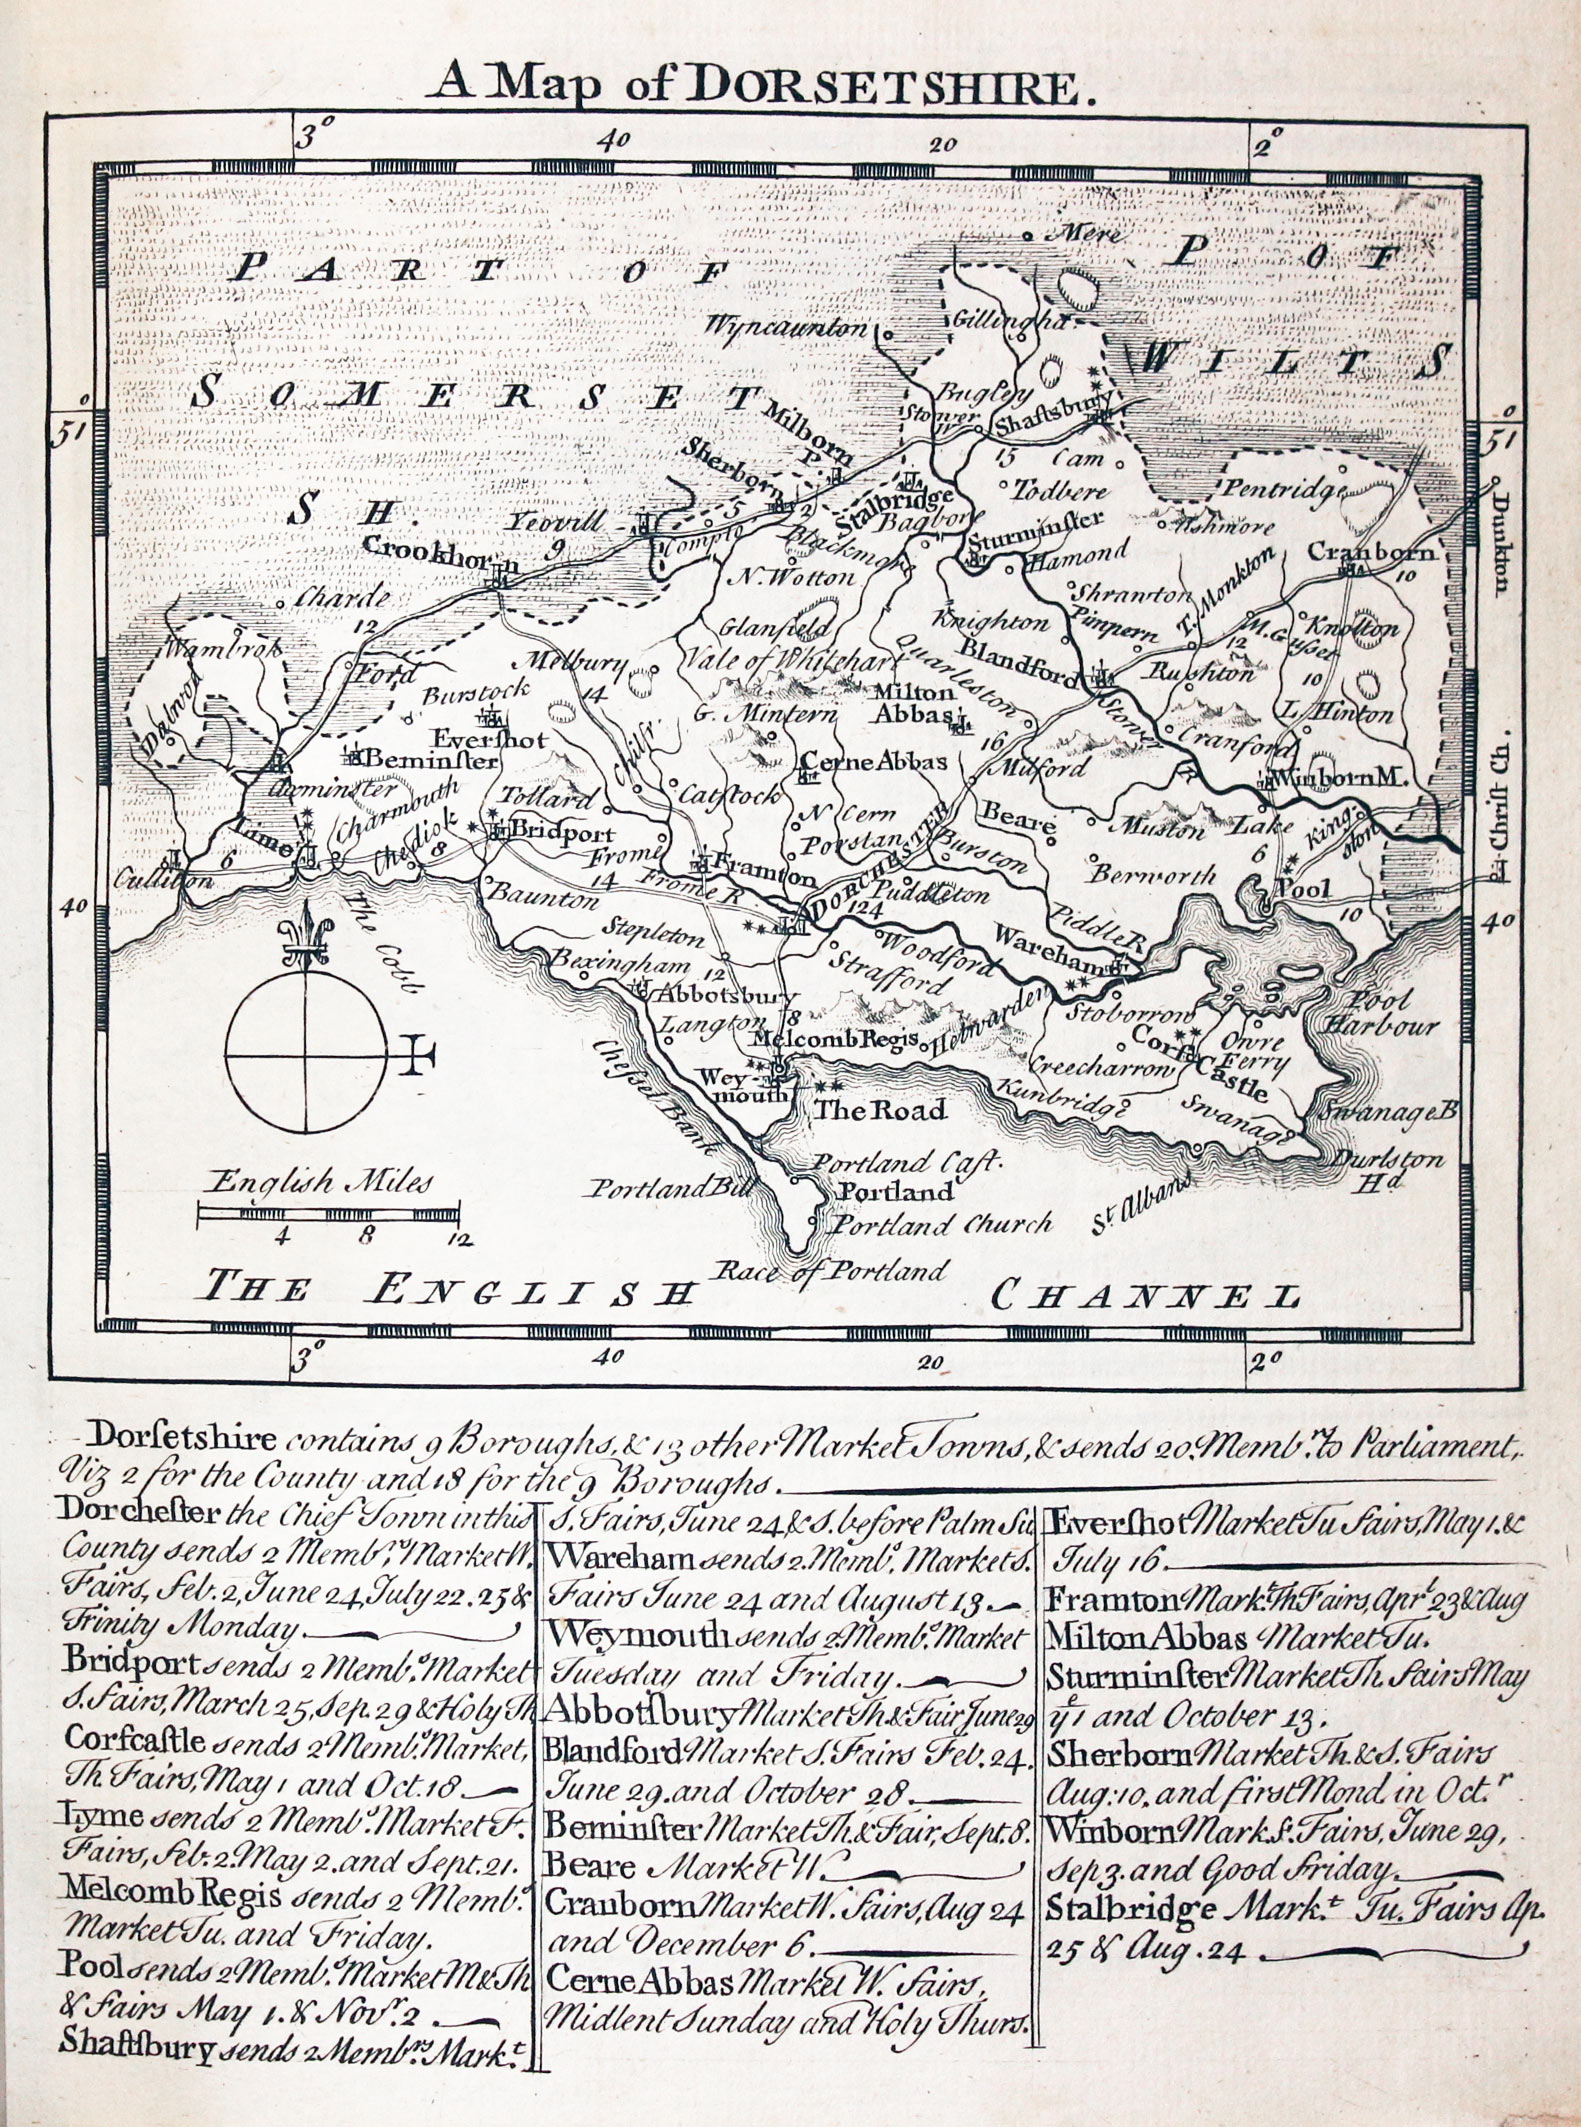 A Map of DORSETSHIRE.
3° 40 20 2°
Mere
PART OF
P OF
Wyncaunton
Gillingha.
WILTS
SOMERSET
Bugley
Milborn
P.
Stower
Shaftsbury
51° 51°
11
15 Cam
Sherborn
Stalbridge
Todbere
Pentridge
SH.
Yeovill
5
2
Bagbore
Sturminster
Ashmore
Dunkton
Crookhorn
9
Compto
Blackmore
Hamond
Cranborn
10
N. Wotton
Charde
Shranton
T. Monkton
12
Glanfield
Knighton
Pimpern
M. Gusset
Knolton
Wambrok
Ford
Melbury
Vale of Whitehart
Quarleston
Blandford
Rushton
12
10
Dalwood
Burstock
14
Milton
Abbas
Stower
L. Hinton
Evershot
G. Mintern
Cranford
Beminster
Chilfr.
Cerne Abbas
16
Milford
R
Winborn M.
Christ Ch.
Axminster
Charmouth
Tollard
Catstock
N Cern
Beare
Muston
Lake
Kingston
Lime
Chediok
Bridport
Frome
Porstan
Burston
Culliton
6
8
Framton
DORCHESTER
Berworth
6
40
Baunton
14
Frome R
Puddleton
124
Pool
10
The Cobb
Stepleton
Woodford
Wareham
Piddle R
40
Bexingham
12
Strafford
Abbotsbury
Stoborrow
Pool
Harbour
Langton
8
Melcomb Regis
Hebwarden
Corfe
Castle
Owre
Ferry
Chessel Bank
Weymouth
Creecharrow
Kunbridge
Swanage
Swanage B
The Road
Durlston
Hd
Portland Cast.
English Miles
Portland Bill
Portland
St. Albans
4 8 12
Portland Church
Race of Portland
THE ENGLISH CHANNEL
3° 40 20 2°
Dorsetshire contains 9 Boroughs, & 13 other Market Towns, & sends 20. Membrs. to Parliament,
Viz 2 for the County and 18 for the 9 Boroughs.
Dorchester the Chief Town in this
County sends 2 Membrs. Market W.
Fairs, Feb. 2, June 24, July 22. 25 &
Trinity Monday.
Bridport sends 2 Membs. Market
S. Fairs, March 25, Sep. 29 & Holy Th
Corfcastle sends 2 Membs. Market,
Th. Fairs, May 1 and Oct. 18.
Lyme sends 2 Membs. Market F.
Fairs, Feb. 2. May 2. and Sept. 21.
Melcomb Regis sends 2 Membs.
Market Tu. and Friday.
Pool sends 2 Membs. Market M & Th
& Fairs May 1. & Novr. 2.
Shaftsbury sends 2 Membrs. Markt.
S. Fairs, June 24, & S. before Palm Su
Wareham sends 2. Membs. Market S.
Fairs June 24 and August 13.
Weymouth sends 2. Membs. Market
Tuesday and Friday.
Abbotsbury Market Th & Fair June 29
Blandford Market S. Fairs Feb. 24.
June 29. and October 28.
Beminster Market Th. & Fair, Sept. 8.
Beare Market W.
Cranborn Market W. Fairs, Aug 24
and December 6.
Cerne Abbas Market W. Fairs,
Midlent Sunday and Holy Thurs.
Evershot Market Tu Fairs, May 1. &
July 16.
Framton Markt. Th Fairs, Aprl 23 & Aug
Milton Abbas Market Tu.
Sturminster Market Th. Fairs May
ye 1 and October 13.
Sherborn Market Th. & S. Fairs
Aug: 10. and first Mond. in Octr.
Winborn Mark. F. Fairs, June 29,
Sep 3. and Good Friday.
Stalbridge Markt. Tu. Fairs Ap.
25 & Aug. 24.